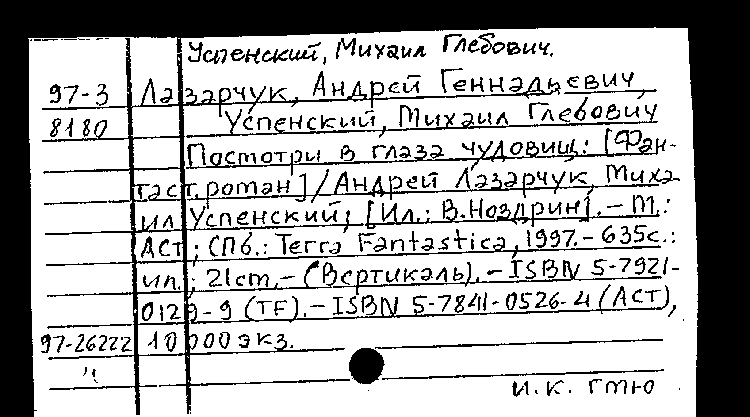 Успенский, Михаил Глебович.
97-3 Лазарчук, Андрей Геннадьевич,
8180 Успенский, Михаил Глебович
Посмотри в глаза чудовищ: [Фан-
таст. роман] / Андрей Лазарчук, Миха-
ил Успенский; [Ил.: В. Ноздрин]. – М.:
АСТ; СПб.: Terra Fantastica, 1997. – 635с.:
ил.; 21cm. – (Вертикаль). – ISBN 5-7921-
0129-9 (TF). – ISBN 5-7841-0526-4 (АСТ),
97-26222 10 000 экз.
и.к. гтю